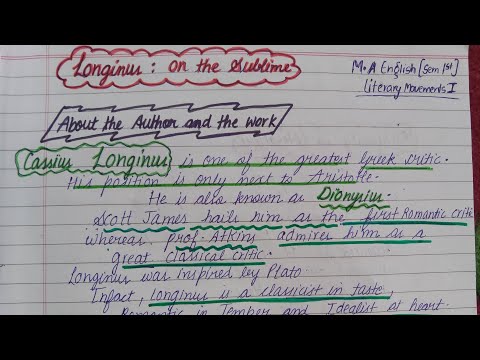 Longinus : on the Sublime
M.A English [Sem 1st]
Literary Movements I
About the Author and the work
Cassius Longinus is one of the greatest Greek critic.
His position is only next to Aristotle.
He is also known as Dionysius.
Scott James hails him as the first Romantic Critic
whereas prof. Atkins admires him as a
great classical critic.
Longinus was inspired by Plato
Infact, Longinus is a classicist in taste,
Romantic in Temper and Idealist at heart.